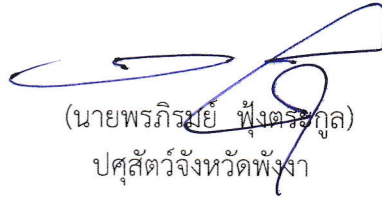 (นายพรภิรมย์ ฟุ้งตระกูล)
ปศุสัตว์จังหวัดพังงา